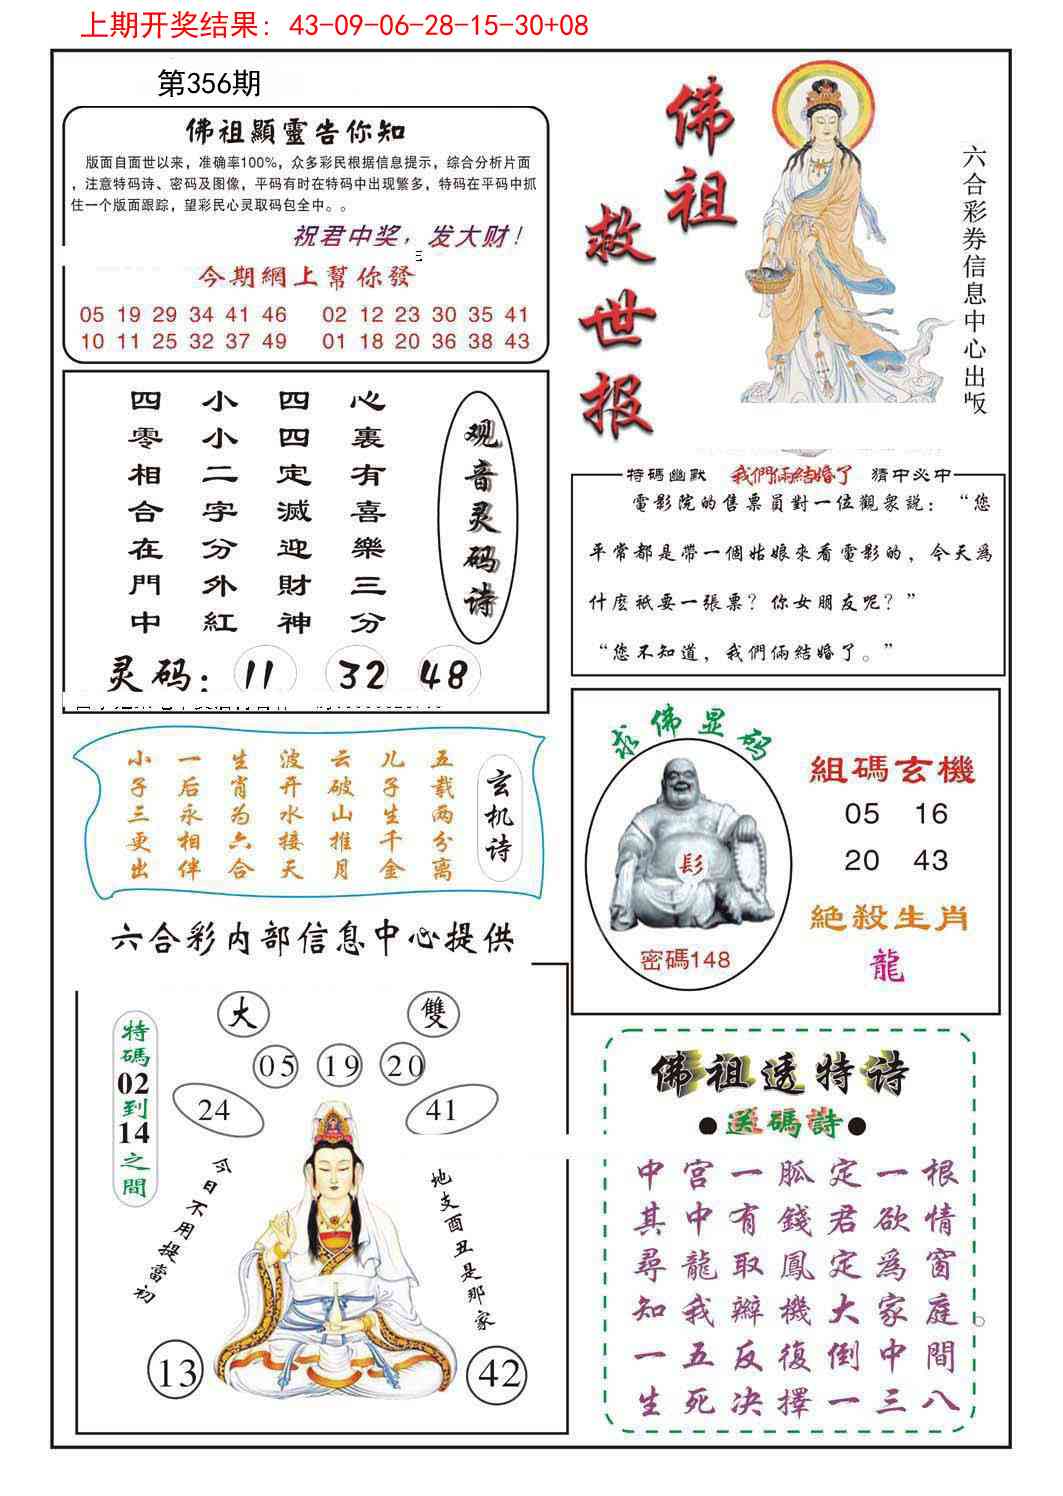 上期开奖结果：43-09-06-28-15-30+08
第356期
佛祖顯靈告你知
版面自面世以来，准确率100%，众多彩民根据信息提示，综合分析片面
，注意特码诗、密码及图像，平码有时在特码中出现繁多，特码在平码中抓
住一个版面跟踪，望彩民心灵取码包全中。。
祝君中奖，发大财！
今期網上幫你發
05 19 29 34 41 46 02 12 23 30 35 41
10 11 25 32 37 49 01 18 20 36 38 43
佛祖
救世报
六合彩券信息中心出版
观音灵码诗
心裏有喜樂三分
四四定滅迎財神
小小二字分外紅
四零相合在門中
灵码： 11 32 48
特碼幽默 我們倆結婚了 猜中必中
電影院的售票員對一位觀衆説：“您
平常都是帶一個姑娘來看電影的，今天爲
什麽衹要一張票？你女朋友呢？”
“您不知道，我們倆結婚了。”
玄机诗
五载两分离
儿子生千金
云破山推月
波开水接天
生肖为六合
一后永相伴
小子三更出
求佛显码
髟
密碼148
組碼玄機
05 16
20 43
絕殺生肖
龍
六合彩内部信息中心提供
特碼02到14之間
大 雙
05 19 20
24 41
今日不用提當初
地支酉丑是那家
13 42
佛祖透特诗
●送碼詩●
中宫一胍定一根
其中有錢君欲情
尋龍取鳳定爲窗
知我辦機大家庭
一五反復倒中間
生死决擇一三八